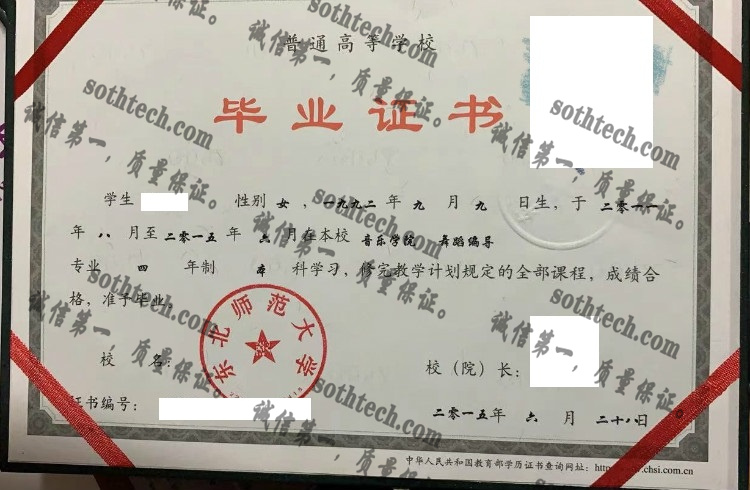 普通高等学校
毕业证书
学生 性别 女 ，一九九二 年 九 月 九 日生，于 二〇一一
年 八 月至 二〇一五 年 六 月在本校 音乐学院 舞蹈编导
专业 四 年制 本 科学习，修完教学计划规定的全部课程，成绩合
格，准予毕业
东北师范大学
校 名：
校（院）长：
证书编号：
二〇一五年 六 月 二十八日
中华人民共和国教育部学历证书查询网址：http .chsi.com.cn
sothtech.com
诚信第一，质量保证。
sothtech.com
诚信第一，质量保证。
sothtech.com
诚信第一，质量保证。
sothtech.com
诚信第一，质量保证。
sothtech.com
诚信第一，质量保证。
sothtech.com
诚信第一，质量保证。
sothtech.com
诚信第一，质量保证。
sothtech.com
诚信第一，质量保证。